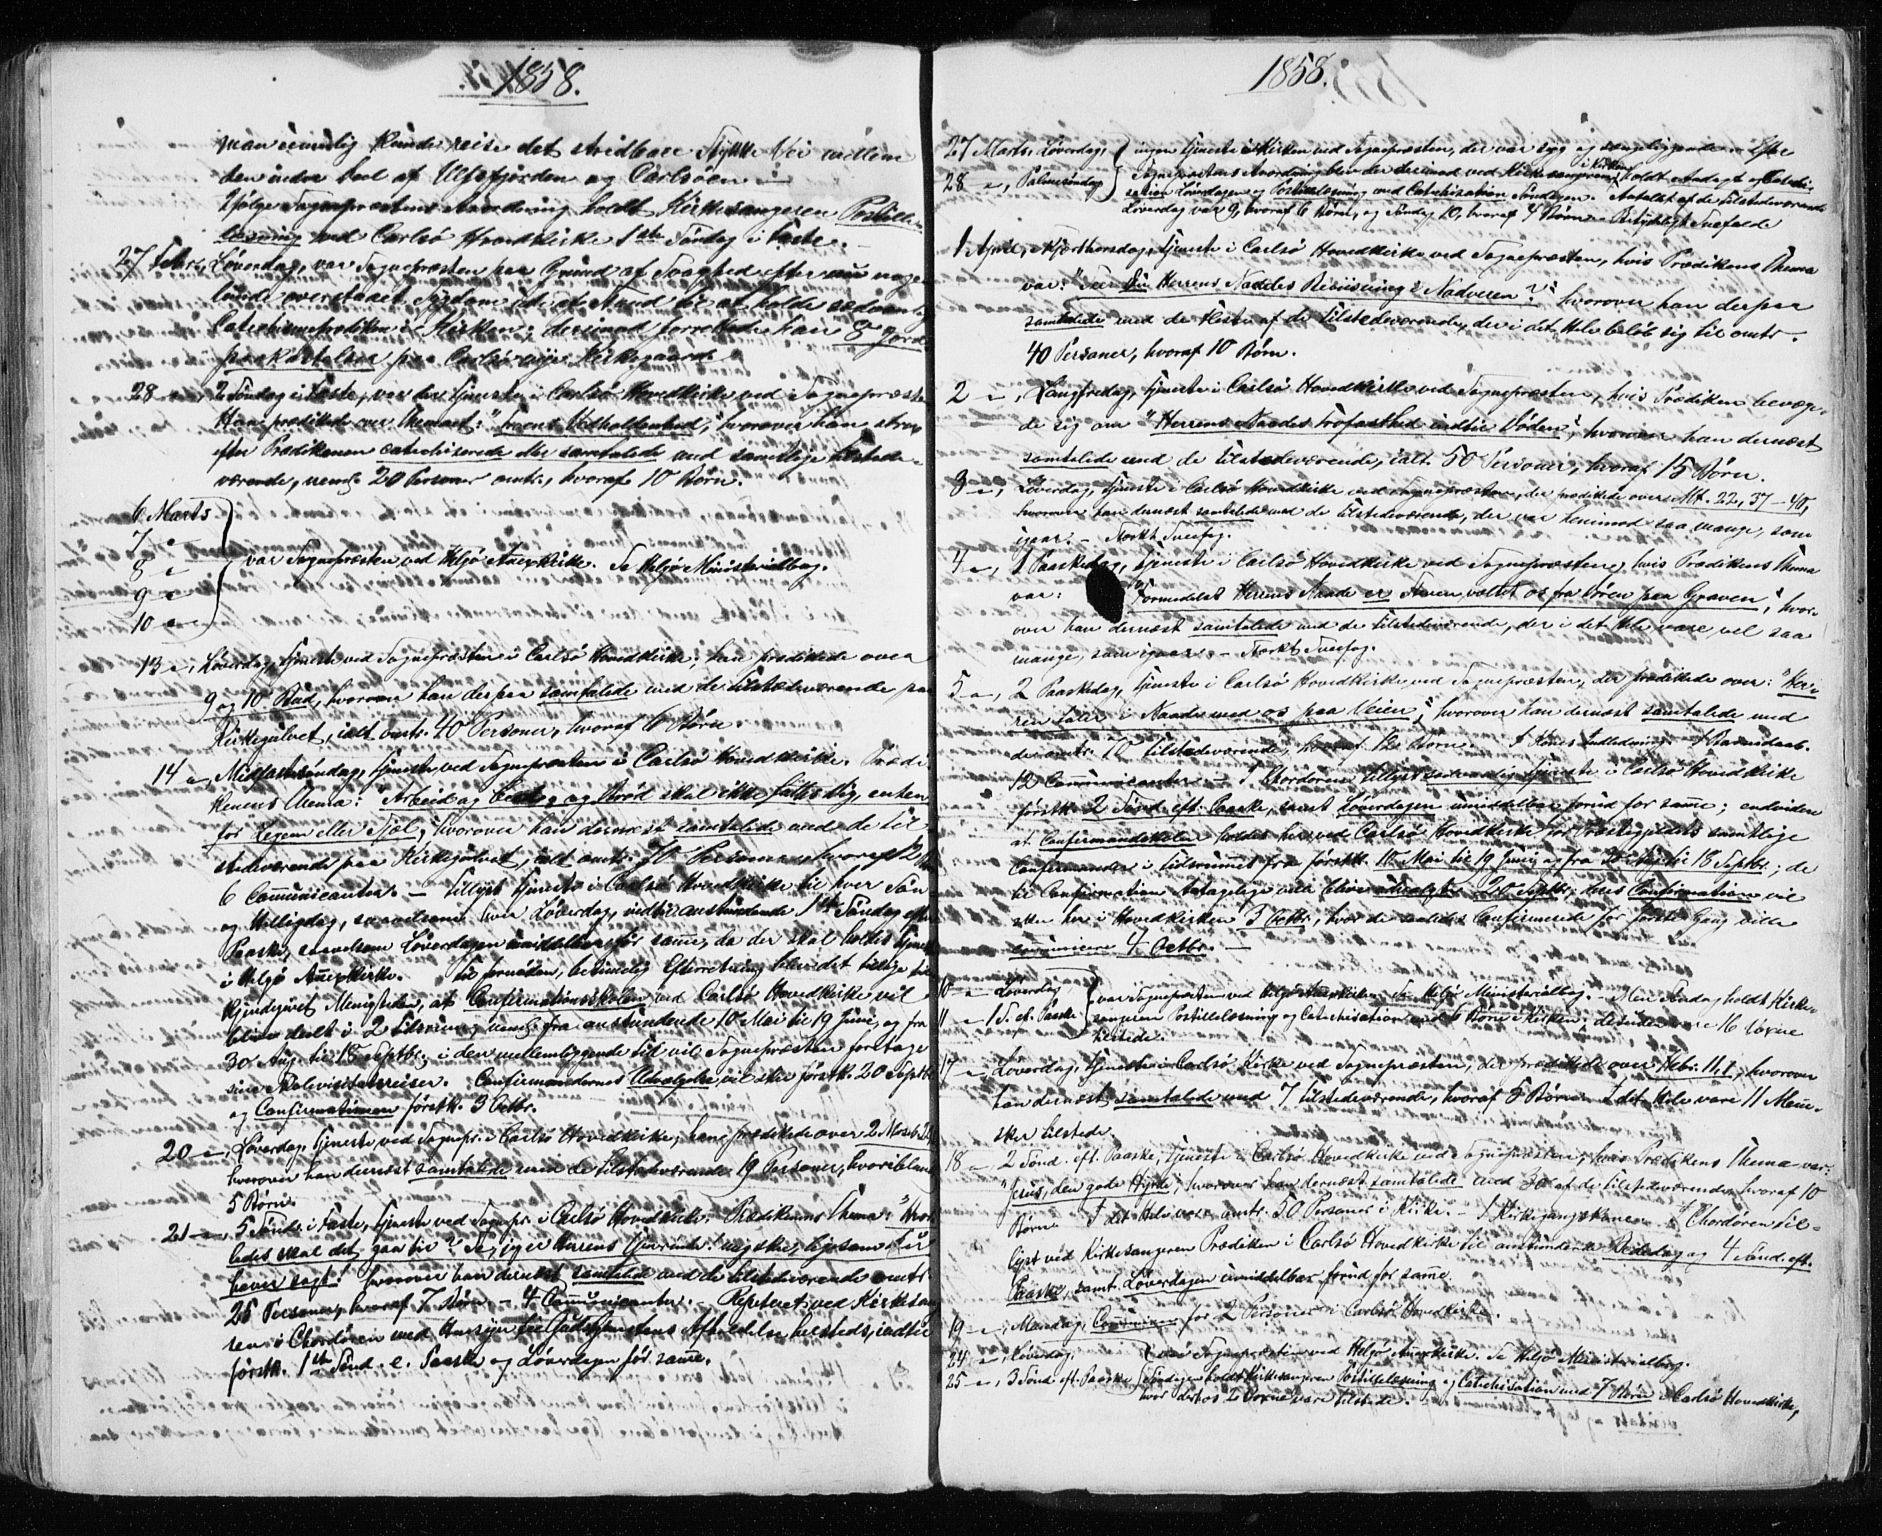 1858.
man nemlig kunde reise det stridbare Stykke Vei mellem
den indre Deel af Ulfsfjorden og Carlsöen.
Ifølge Sognepræstens Anordning holdt Kirkesangeren Postill-
læsning ved Carlsö Hovedkirke 1ste Söndag i Faste.
27 Febr., Löverdag, var Sognepræsten paa Grund af Svaghed efter nu noge-
lunde overstaaet Sygdom ude af Stand til at holde sædvanlig
Catechismeprædiken i Kirken; derimod forrettede han 8 Jord-
paakastelser paa Carlsö nye Kirkegaard.
28 - 2 Söndag i Faste, var der Tjeneste i Carlsö Hovedkirke ved Sognepræsten
Han prædikede over Themaet: "Troens Vedholdenhed", hvorover han strax
efter Prædikenen catechiserede eller samtalede med samtlige tilstede-
værende, neml. 20 Personer omtr., hvoraf 10 Börn.
6 Marts
7 -
8 - var Sognepræsten ved Helgö Annexkirke. Se Helgö Ministerialbog.
9 -
10 -
13 -, Löverdag, Tjeneste ved Sognepræsten i Carlsö Hovedkirke; han prædikede over
9 og 10 Bud, hvorover han derpaa samtalede med de tilstedeværende paa
Kirkegulvet, ialt omtr. 40 Personer, hvoraf 6 Börn.
14 -, Midfastesöndag, Tjeneste ved Sognepræsten i Carlsö Hovedkirke. Prædi-
kenens Thema: "Arbeid og Brød skal ikke fattes dig, enten
for Legem eller Sjæl", hvorover han dernæst samtalede med de til-
stedeværende paa Kirkegulvet, ialt omtr. 70 Personer, hvoraf 12
6 Communicanter. - Tillyst Tjeneste i Carlsö Hovedkirke til hver Sön-
og Helligdag, saavelsom hver Löverdag, indtil anstundende 1ste Söndag efter
Paaske, saavelsom Löverdagen umiddelbar för samme, da der skal holdes Tjeneste
i Helgö Annexkirke. Til fornöden, betimelig Efterretning blev det tillige til-
kjendegivet Menigheden, at Confirmationsskolen ved Carlsö Hovedkirke vil
blive deelt i 2 Tilsving, neml. fra anstundende 10 Mai til 19 Juni, og fra
30 Aug. til 18 Septbr.; i den mellemliggende Tid vil Sognepræsten foretage
sine Skolevisitatsreiser. Confirmandernes Udvælgelse vil skee förstk. 20 Septbr
og Confirmationen förstk. 3 Octbr.
20 -, Löverdag, Tjeneste ved Sognepr. i Carlsö Hovedkirke; han prædikede over 2 Moseb. 2
hvorover han dernæst samtalede med de tilstedeværende 19 Personer, hvoriblandt
5 Börn.
21 -, 5 Sönd. i Faste, Tjeneste ved Sognepr. i Carlsö Hovedkirke. Prædikenens Thema: "Hvor-
ledes skal det gaa til? Se, jeg er Herrens Tjenerinde! mig skee, ligesom Du
haver sagt!" hvorover han dernæst samtalede med de tilstedeværende omtr.
25 Personer, hvoraf 7 Börn. - 4 Communicanter. - Repeteret ved Kirkesan-
ren i Chordören med Hensyn til Gudstjenestens Afholdelse helsteds, indtil
förstk. 1ste Sönd. e. Paaske og Löverdagen för samme.
1858.
27 Marts, Löverdag, ingen Tjeneste i Kirken ved Sognepræsten, der var syg og sengeliggende. Efter
28 -, Palmesöndag Sognepræstens Anordning blev der derimod ved Kirkesangeren i Kirken holdt Andagt og Catechi-
sation Löverdagen og Postillelæsning med Catechisation Söndagen. Antallet af de tilstedeværende
Löverdag var 9, hvoraf 6 Börn, og Söndag 10, hvoraf 4 Börn.
1 April, Skjærthorsdag, Tjeneste i Carlsö Hovedkirke ved Sognepræsten, hvis Prædikens Thema
var: "Seer Du Herrens Naades Beviisning i Nadveren?" hvorover han derpaa
samtalede med de fleste af de tilstedeværende, der i det Hele beløb sig til omtr.
40 Personer, hvoraf 10 Börn.
2 -, Langfredag, Tjeneste i Carlsö Hovedkirke ved Sognepræsten, hvis Prædiken bevæge-
de sig om "Herrens Naades Trofasthed indtil Döden", hvorover han dernæst
samtalede med de tilstedeværende, ialt 50 Personer, hvoraf 15 Börn.
3 -, Löverdag, Tjeneste i Carlsö Hovedkirke ved Sognepræsten, der prædikede over Mt. 22, 37-40,
hvorover han dernæst samtalede med de tilstedeværende, der var henimod saa mange, som
igaar. - Stærkt Snefog.
4 -, 1 Paaskedag, Tjeneste i Carlsö Hovedkirke ved Sognepræsten, hvis Prædikens Thema
var: "Formedelst Herrens Naade er Stenen væltet os fra Dören paa Graven", hvor-
over han dernæst samtalede med de tilstedeværende, der i det Hele vare vel saa
mange, som igaar. - Stærkt Snefog.
5 -, 2 Paaskedag, Tjeneste i Carlsö Hovedkirke ved Sognepræsten, der prædikede over: "Her-
ren taler i Naade med os paa Veien", hvorover han dernæst samtalede med
de omtr. 70 tilstedeværende, hvoraf 12 Börn. 1 Kones Indledning. 1 Barnedaab.
12 Communicanter. - I Chordören tillyst sædvanlig Tjeneste i Carlsö Hovedkirke
förstk. 2 Sönd. eft. Paaske, samt Löverdagen umiddelbar forud for samme; endvidere
at Confirmandskolen holdes her ved Carlsö Hovedkirke for Præstegjeldets samtlige
Confirmander i Tidsrummet fra förstk. 10 Mai til 19 Juni, og fra 30 Aug. til 18 Septbr.; de
til Confirmation Antagelige ville blive udvalgte 20 Septbr.; deres Confirmation vil
skee her i Hovedkirken 3 Octbr., hvor de saaledes Confirmerede for förste Gang ville
communicere 4 Octbr. -
10 - Löverdag var Sognepræsten ved Helgö Annexkirke. Se Helgö Ministerialbog. Men Söndag holdt Kirke-
11 - 1 S. eft. Paaske sangeren Postillelæsning og Catechisation med 6 Börn i Kirken; desuden vare 16 Voxne
tilstede.
17 -, Löverdag, Tjeneste i Carlsö Kirke ved Sognepræsten, der prædikede over Hebr. 11,1, hvorover
han dernæst samtalede med 7 tilstedeværende, hvoraf 5 Börn. I det Hele vare 11 Menne-
sker tilstede.
18 -, 2 Sönd. eft. Paaske, Tjeneste i Carlsö Hovedkirke ved Sognepræsten, hvis Prædikens Thema var:
"Jesus, den gode Hyrde", hvorover han dernæst samtalede med 30 af de tilstedeværende, hvoraf 10
Börn. I det Hele vare omtr. 50 Personer i Kirke. - 1 Kirkegangskone. I Chordören til-
lyst ved Kirkesangeren Prædiken i Carlsö Hovedkirke til anstundende Bededag og 4 Sönd. eft.
Paaske, samt Löverdagen umiddelbar forud for samme.
19 -, Mandag, Communion for 2 Personer i Carlsö Hovedkirke.
24 -, Löverdag, var Sognepræsten ved Helgö Annexkirke. Se Helgö Ministerialbog.
25 -, 3 Sönd. eft. Paaske Söndagen holdt Kirkesangeren Postillelæsning og Catechisation med 7 Börn i Carlsö Hovedkirke,
hvor derhos 2 Voxne vare tilstede.